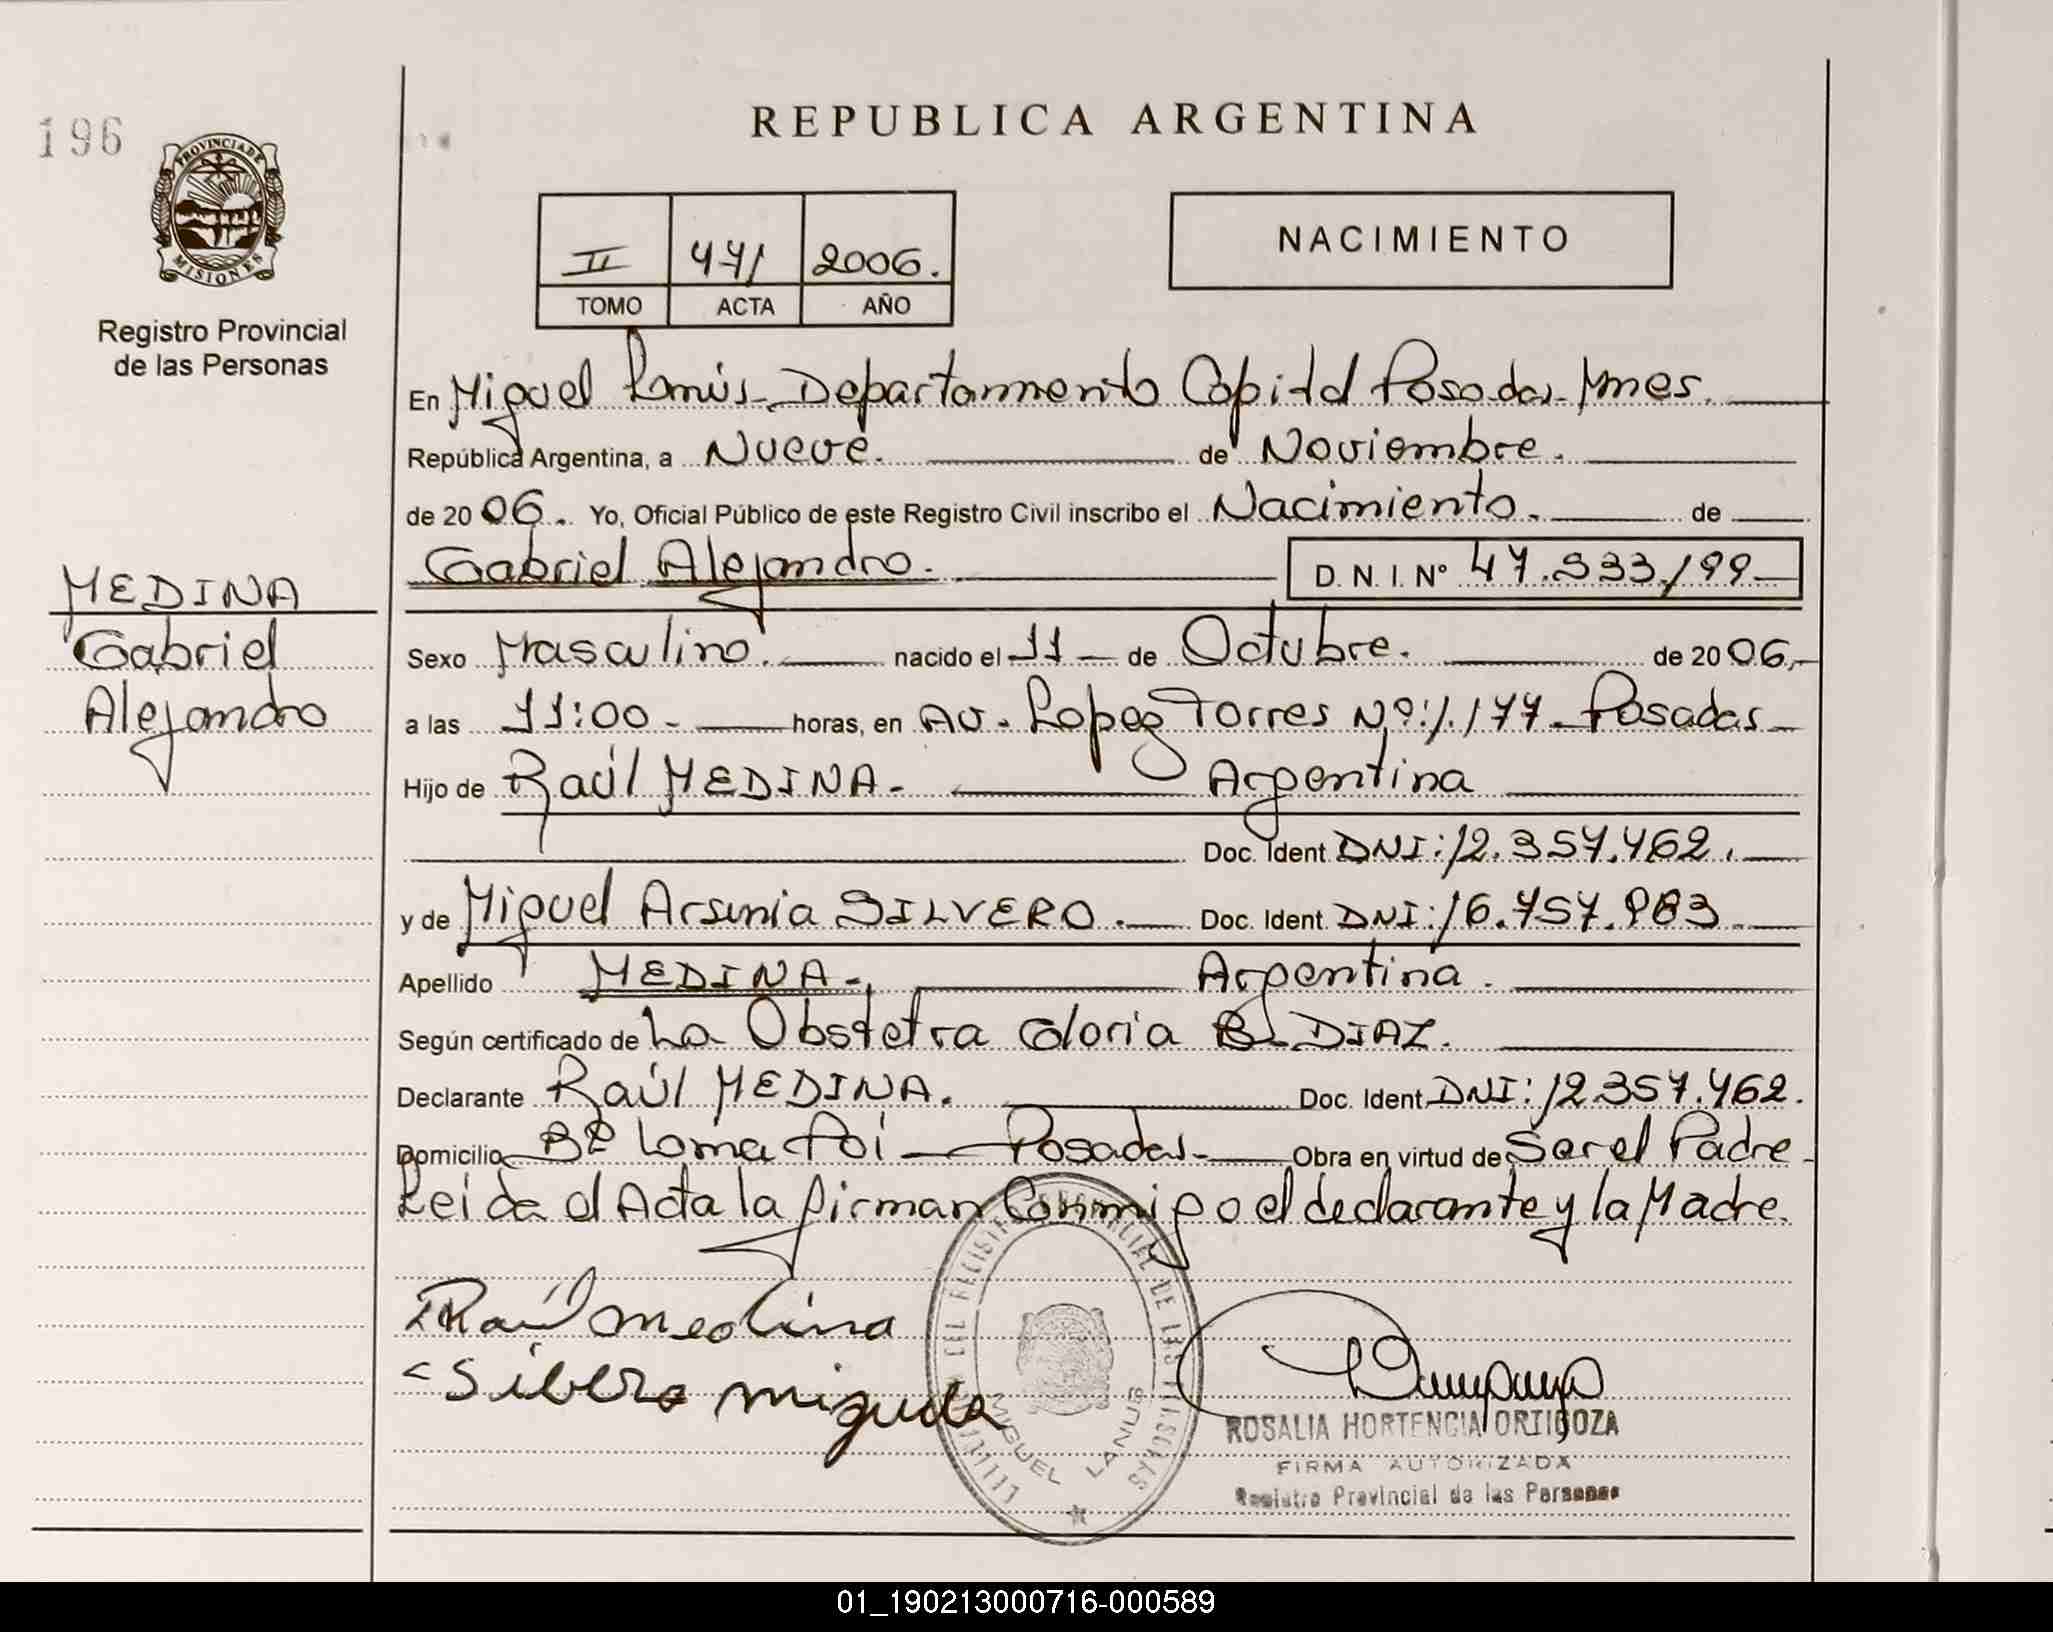 196
REPUBLICA ARGENTINA
PROVINCIA DE
MISIONES
Registro Provincial
de las Personas
II 441 2006.
TOMO ACTA AÑO
NACIMIENTO
En Miguel Lanús - Departamento Capital Posadas - Mnes.
República Argentina, a Nueve. de Noviembre.
de 20 06. Yo, Oficial Público de este Registro Civil inscribo el Nacimiento. de
Gabriel Alejandro. D. N. I. Nº 47.333.199
MEDINA
Gabriel
Alejandro
Sexo Masculino. nacido el 11 de Octubre. de 20 06.
a las 11:00 - horas, en Av. Lopez Torres Nº: 1.177 - Posadas
Hijo de Raúl MEDINA - Argentina
Doc. Ident. DNI: 12.357.462.
y de Miguel Arsenia SILVERO. Doc. Ident. DNI: 16.757.983
Apellido MEDINA - Argentina.
Según certificado de La Obstetra Gloria B. DIAZ.
Declarante Raúl MEDINA. Doc. Ident. DNI: 12.357.462.
Domicilio Bº Loma Poi - Posadas - Obra en virtud de Ser el Padre
Leida el Acta la firman Conmigo el declarante y la Madre.
Raúl medina
Silbero miguela
MIGUEL LANUS
ROSALIA HORTENCIA ORTIGOZA
FIRMA AUTORIZADA
Registro Provincial de las Personas
01_190213000716-000589